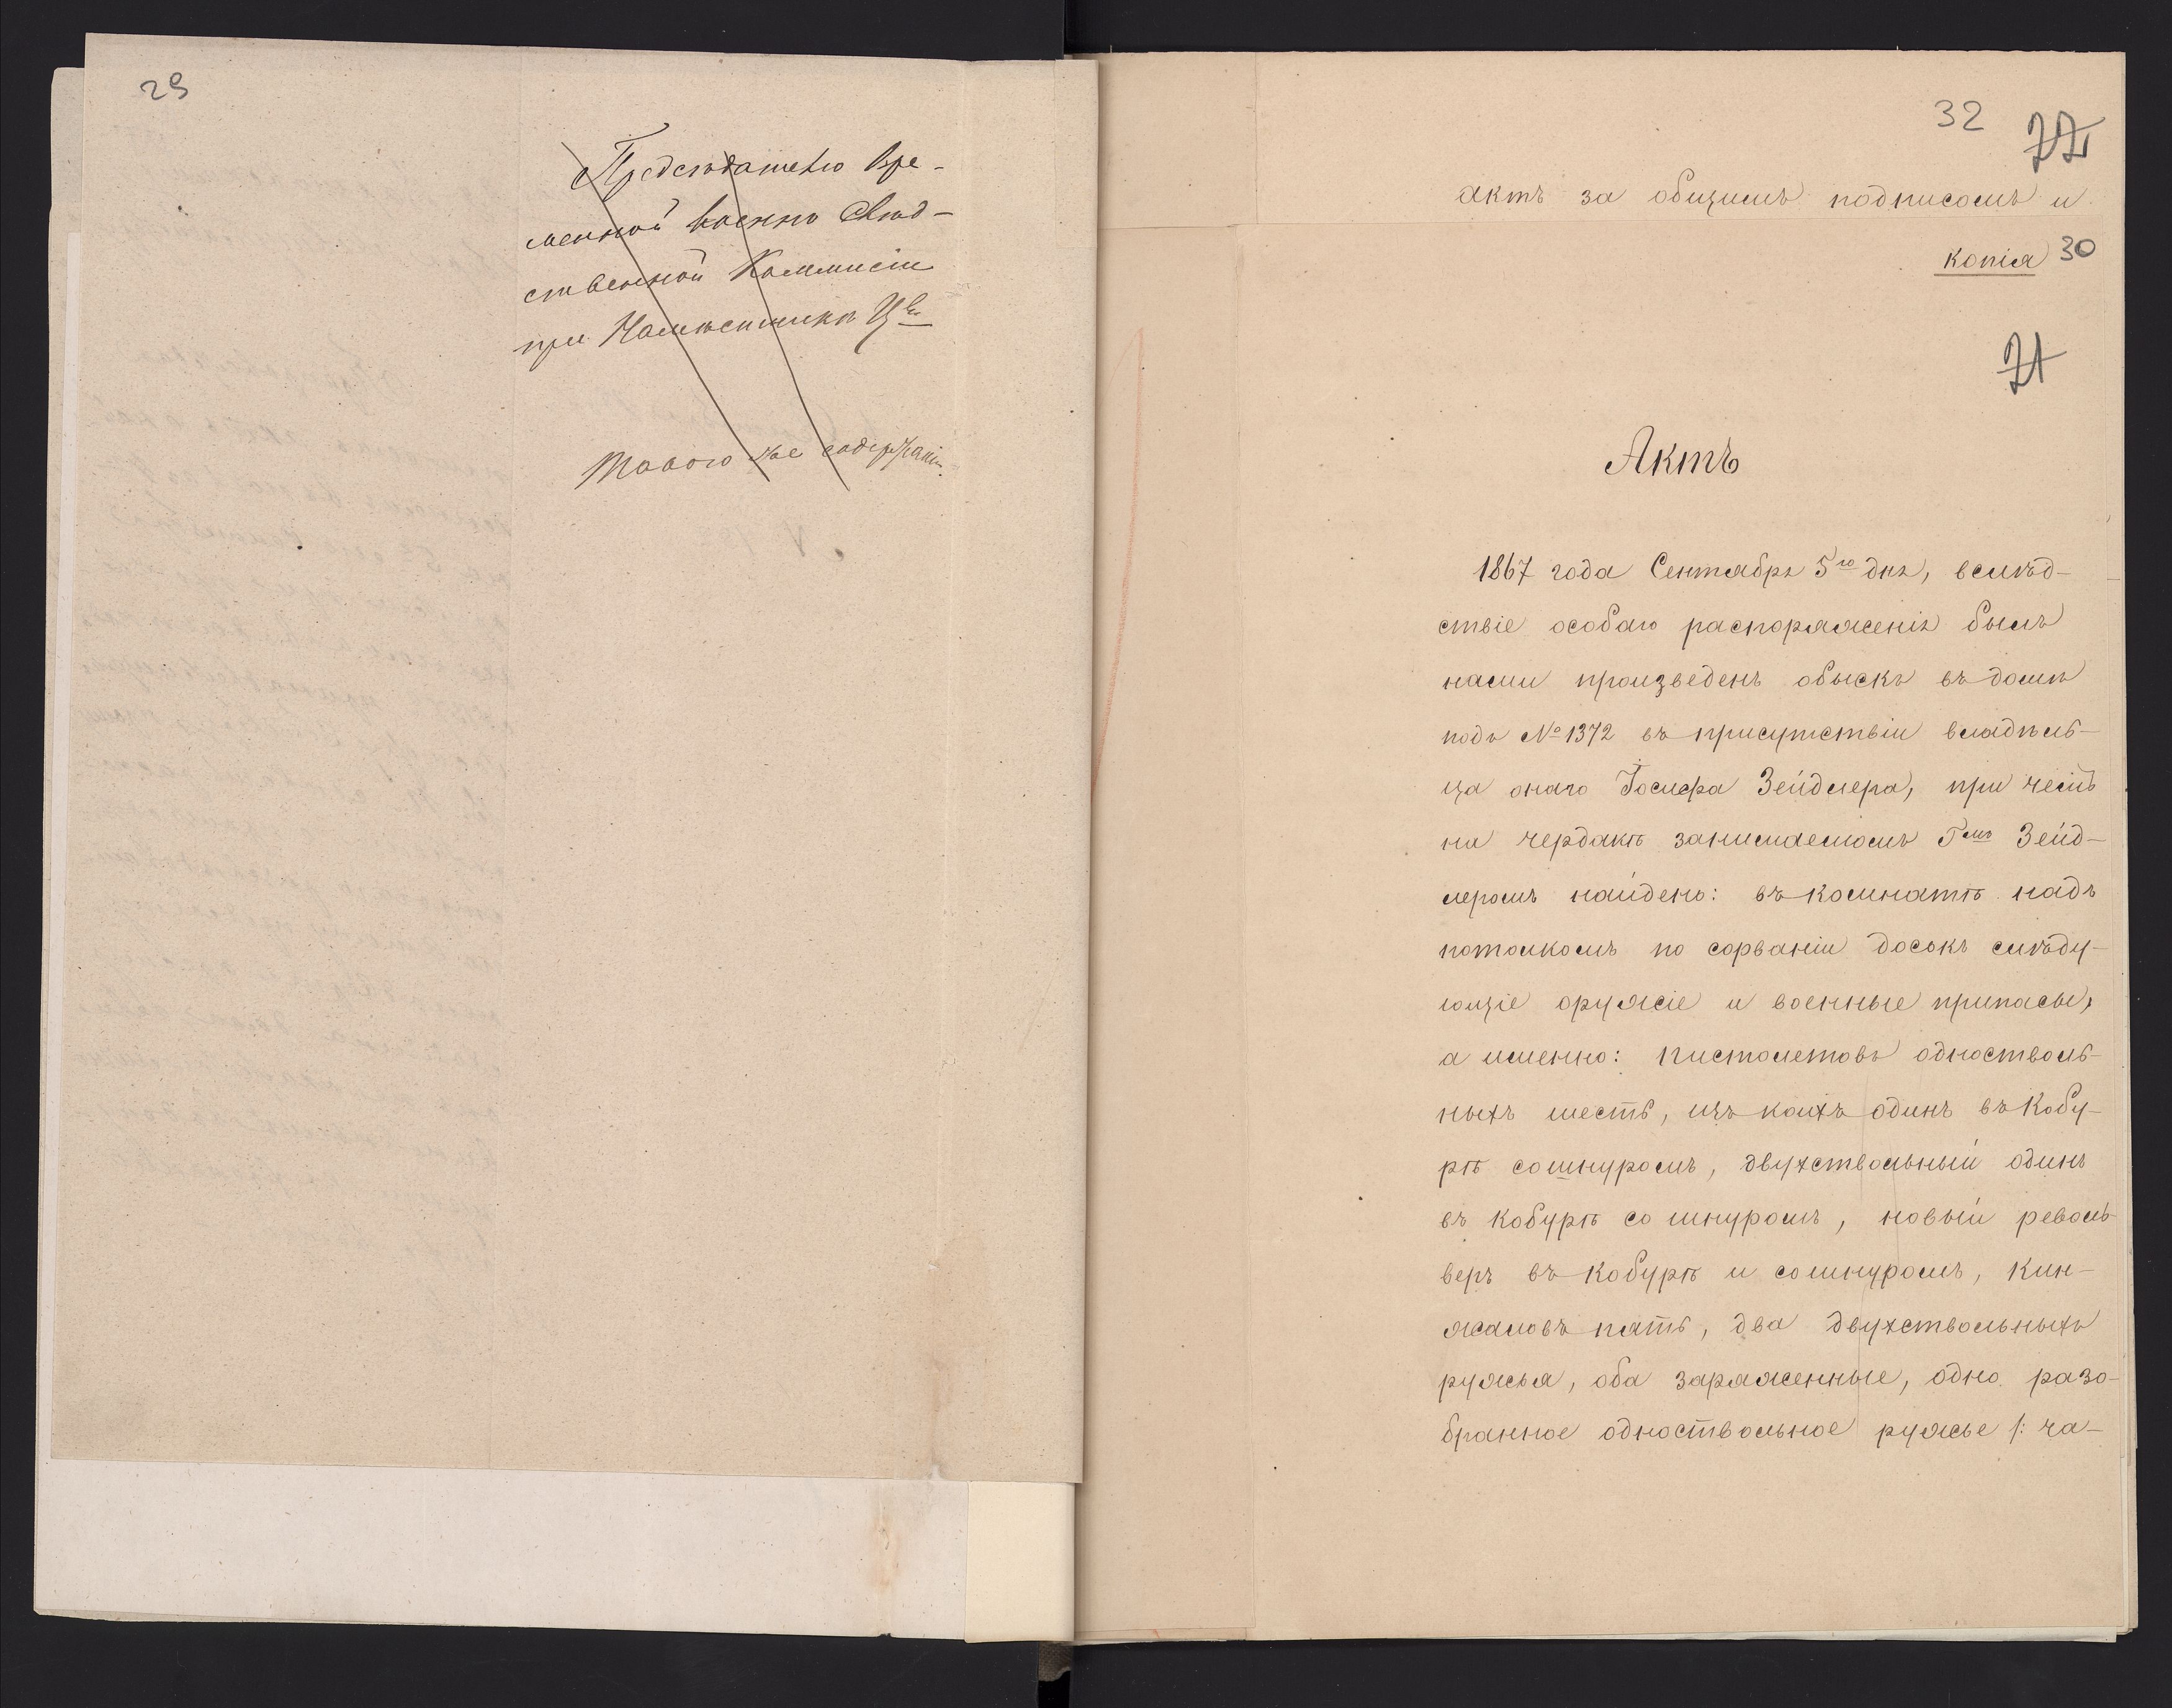 29
Предсѣдателю Вре-
менной Военно Слѣд-
ственной Коммисіи
при Намѣстникѣ Ц<sup>вѣ</sup>
Такого же содержанія.
32
акть за общимъ подписомъ и
копія 30
71
Актъ
1867 года Сентября 5<sup>го</sup> дня, вслѣд-
ствіе особаго распоряженія былъ
нами произведенъ обыскъ въ домѣ
подъ № 1372 въ присутствіи владѣль-
ца онаго Іосифа Зейдлера, при чемъ
на чердакѣ занимаемомъ Г<sup>мъ</sup> Зейд-
леромъ найдено: въ комнатѣ надъ
потолкомъ по сорваніи досокъ слѣду-
ющіе оружіе и военные припасы,
а именно: пистолетовъ одностволь-
ныхъ шесть, изъ коихъ одинъ въ кобу-
рѣ со шнуромъ, двухствольный одинъ
въ кобурѣ со шнуромъ, новый револь-
веръ въ кобурѣ и со шнуромъ, кин-
жаловъ пять, два двухствольныхъ
ружья, оба заряженные, одно разо-
бранное одноствольное ружье /: ча-